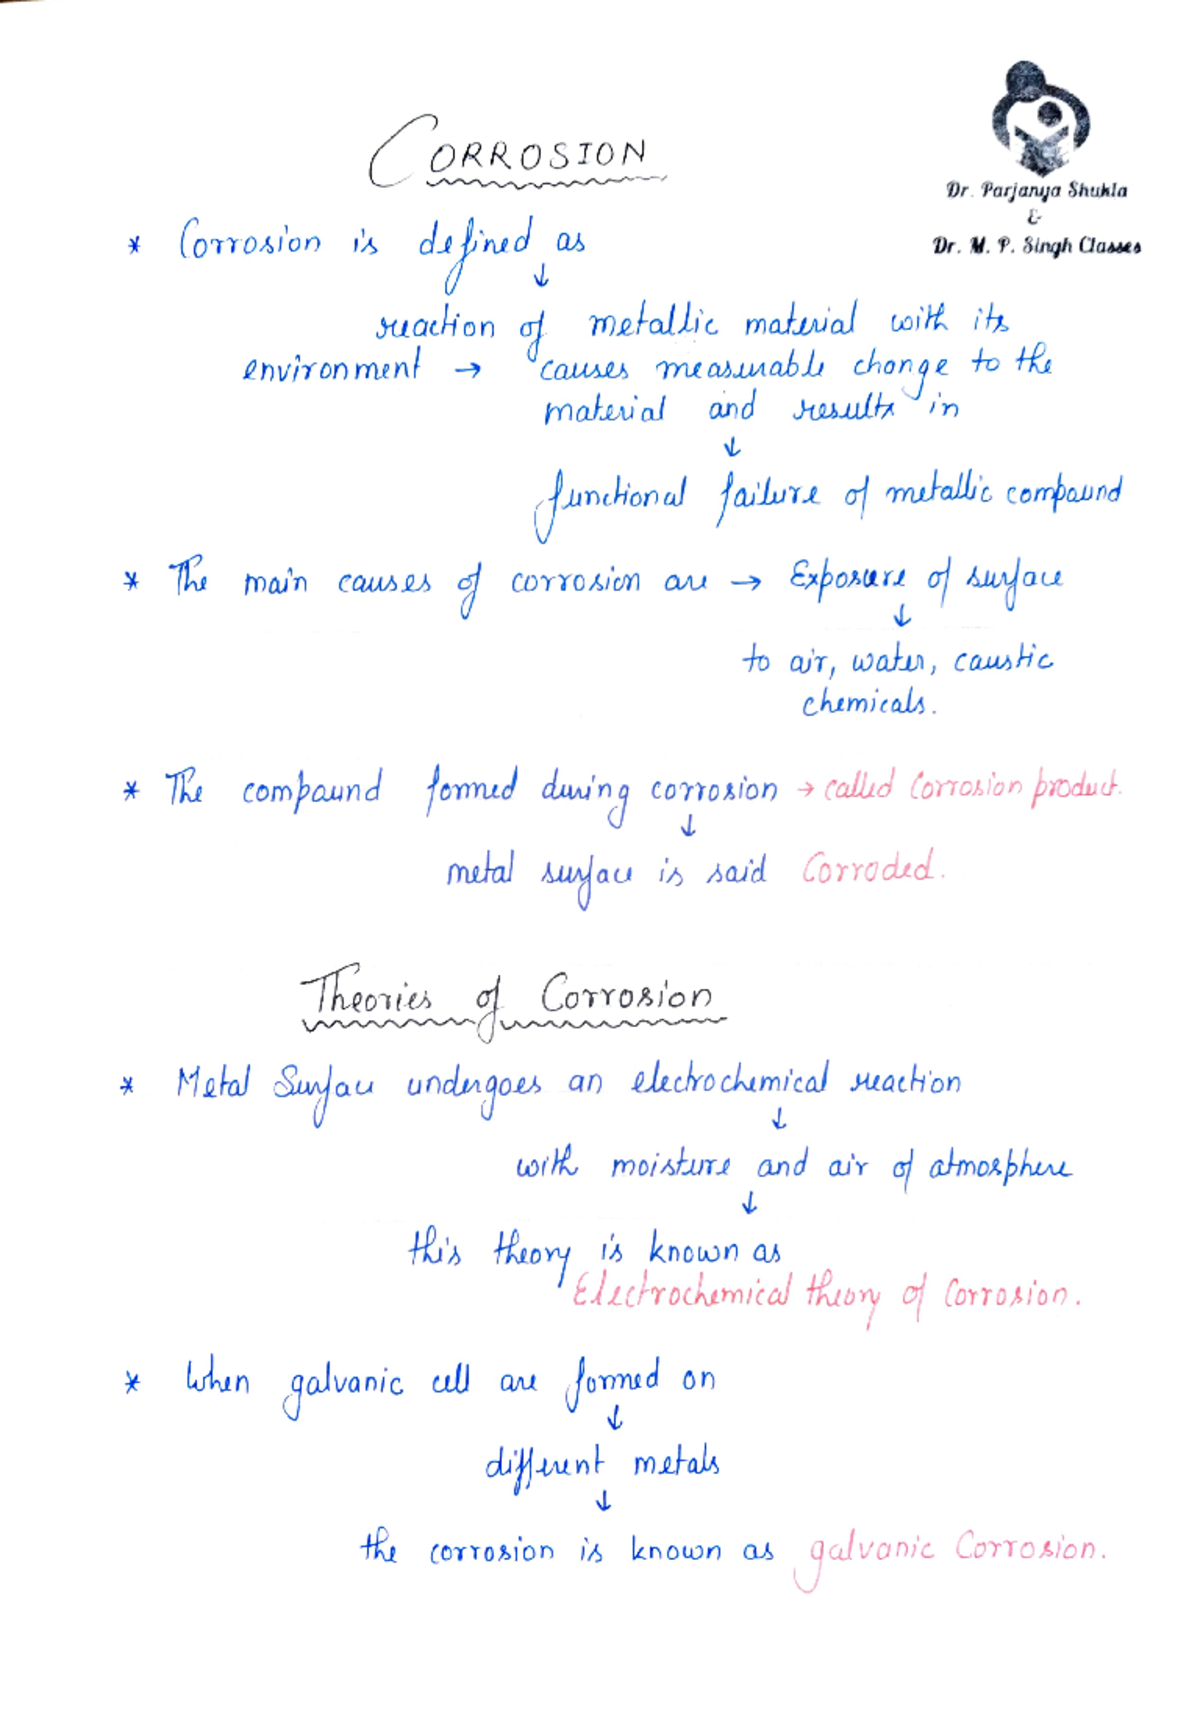 CORROSION
Dr. Parjanya Shukla
&
Dr. M. P. Singh Classes
* Corrosion is defined as
↓
reaction of metallic material with its
environment → causes measurable change to the
material and results in
↓
functional failure of metallic compound
* The main causes of corrosion are → Exposure of surface
↓
to air, water, caustic
chemicals.
* The compound formed during corrosion → called Corrosion product.
↓
metal surface is said Corroded.
Theories of Corrosion
* Metal Surface undergoes an electrochemical reaction
↓
with moisture and air of atmosphere
↓
this theory is known as
Electrochemical theory of Corrosion.
* When galvanic cell are formed on
↓
different metals
↓
the corrosion is known as galvanic Corrosion.